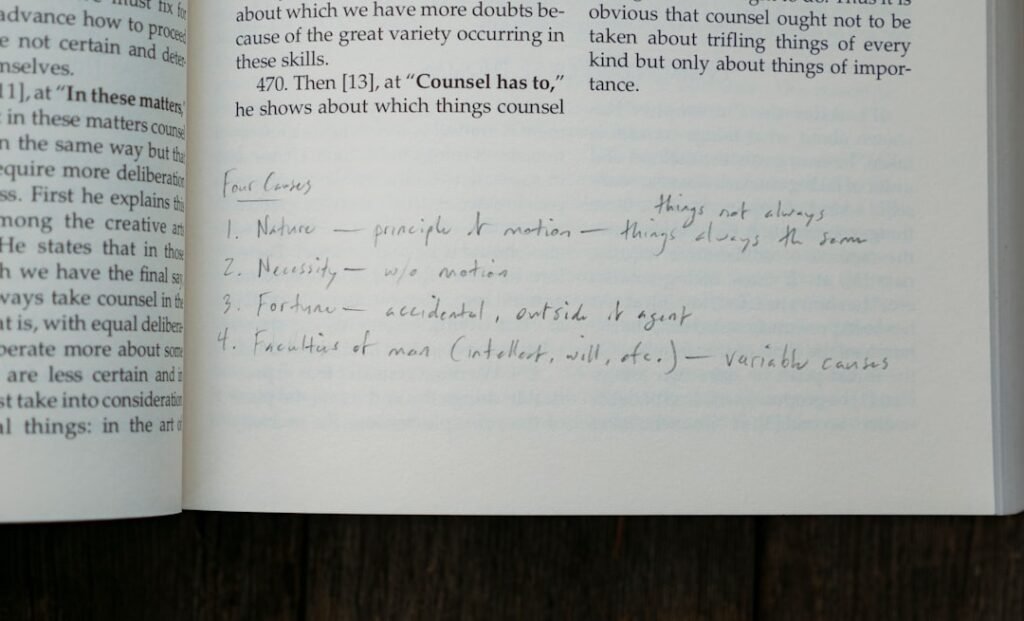 must fix for
advance how to proceed
e not certain and deter-
mselves.
11], at “In these matters,”
in these matters counsel
n the same way but that
equire more deliberation
ss. First he explains this
mong the creative arts
He states that in those
h we have the final say
ways take counsel in the
at is, with equal delibera-
perate more about some
are less certain and in
st take into consideration
al things: in the art of
about which we have more doubts be-
cause of the great variety occurring in
these skills.
470. Then [13], at “Counsel has to,”
he shows about which things counsel
obvious that counsel ought not to be
taken about trifling things of every
kind but only about things of impor-
tance.
Four Causes
things not always
1. Nature — principle of motion — things always the same
2. Necessity — w/o motion
3. Fortune — accidental, outside of agent
4. Faculties of man (intellect, will, etc.) — variable causes